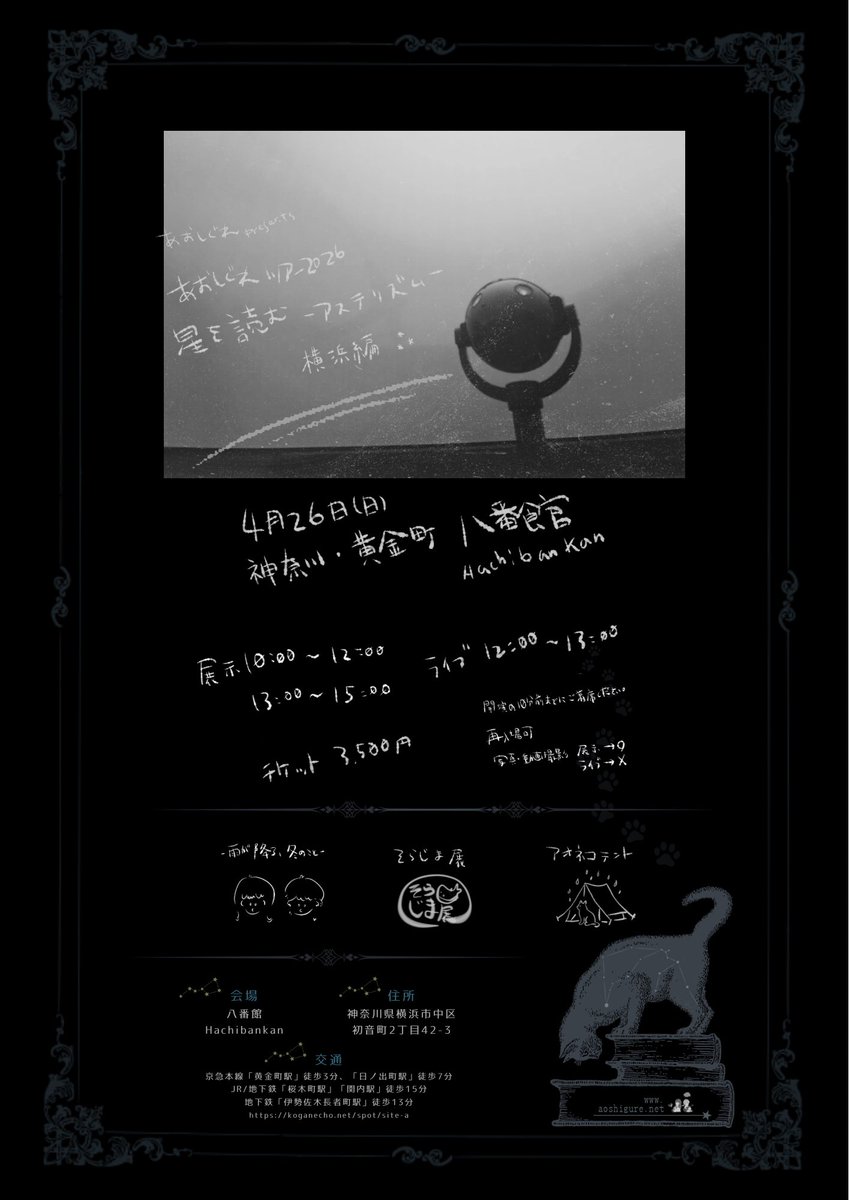 あおしぐれ presents
あおしぐれ ツアー2026
星を読む -アステリズム-
横浜編
4月26日(日)
神奈川・黄金町 八番館
Hachibankan
展示 10:00 〜 12:00
13:00 〜 15:00
ライブ 12:00 〜 13:00
開演の10分前までにご着席ください。
再入場可
写真・動画撮影 展示→○
ライブ→×
チケット 3,500円
-雨が降る、冬のこと-
そらじま展
そらじま展
アオネコテント
会場
八番館
Hachibankan
住所
神奈川県横浜市中区
初音町2丁目42-3
交通
京急本線「黄金町駅」徒歩3分、「日ノ出町駅」徒歩7分
JR/地下鉄「桜木町駅」「関内駅」徒歩15分
地下鉄「伊勢佐木長者町駅」徒歩13分
https://koganecho.net/spot/site-a
www.
aoshigure.net